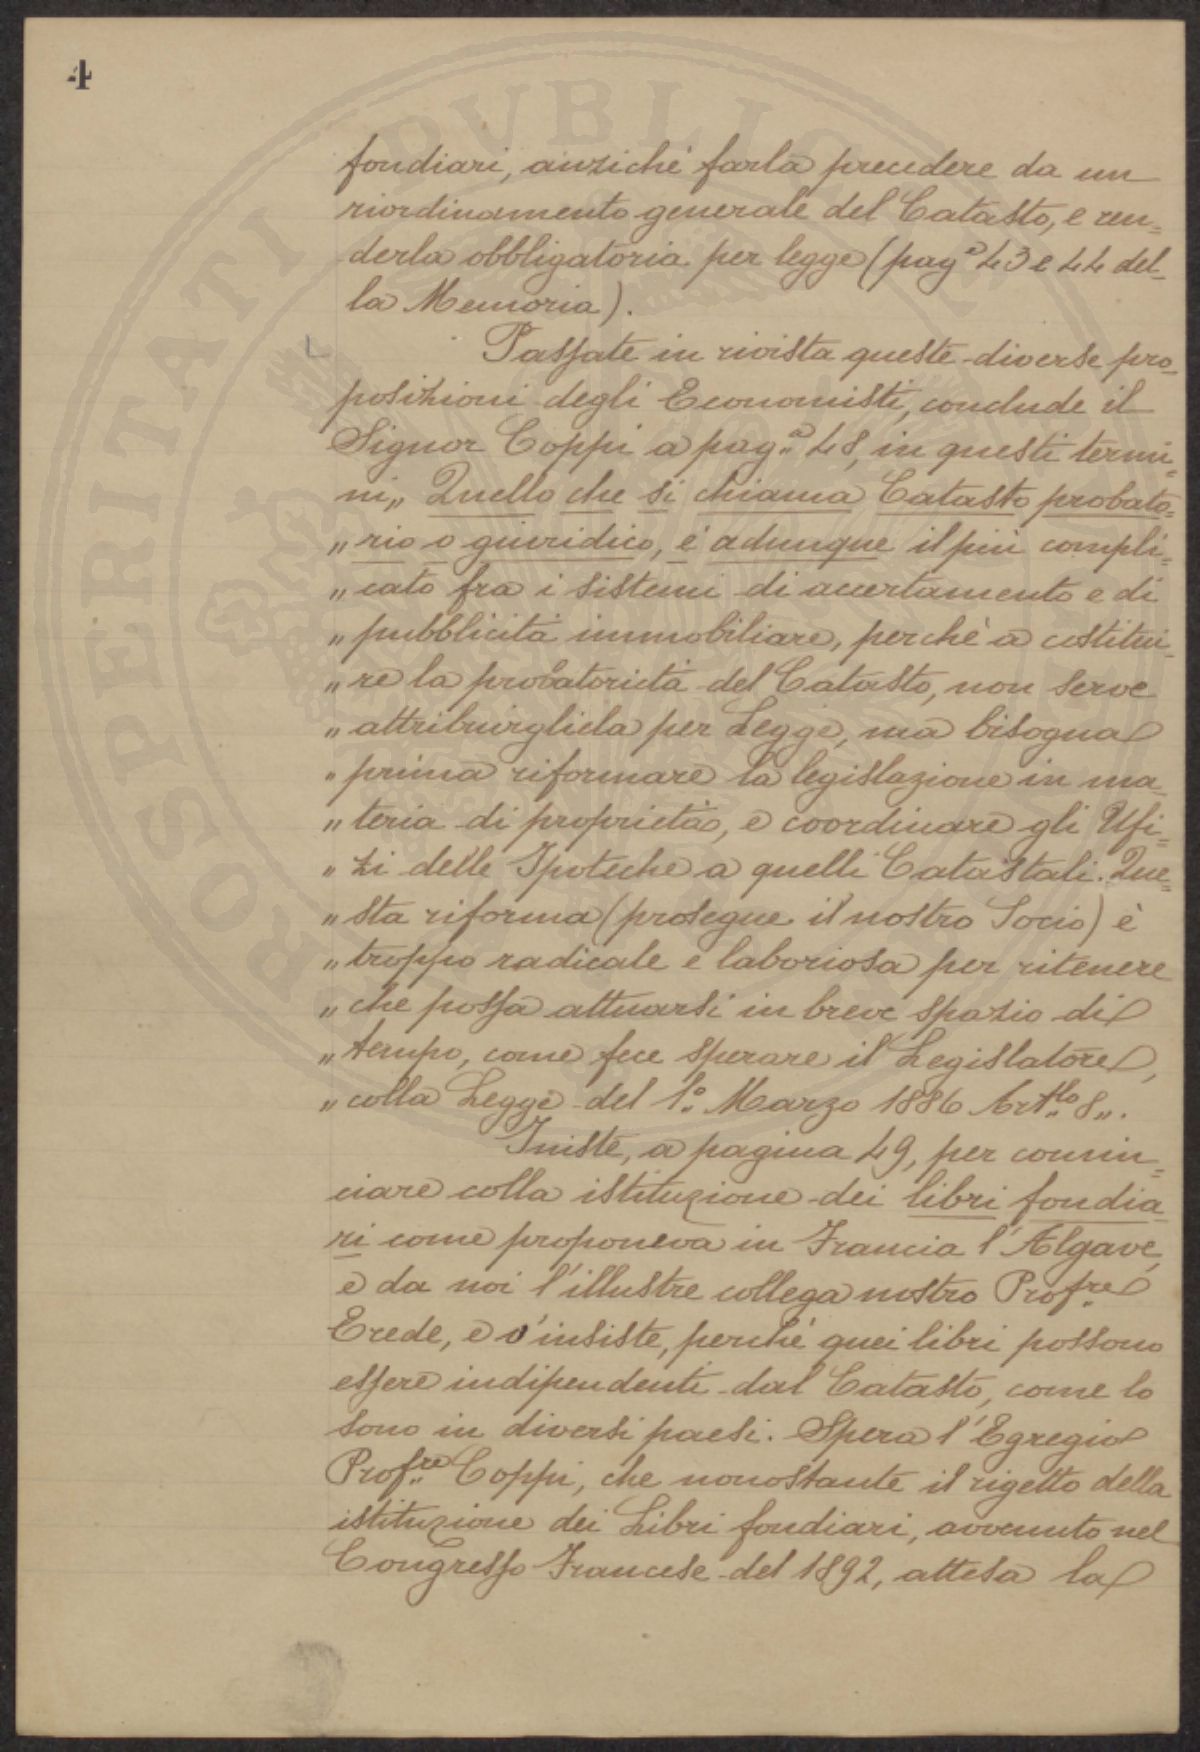 4
fondiari, anziché farla precedere da un
riordinamento generale del Catasto, e ren=
derla obbligatoria per legge (pag.ª 43 e 44 del-
la Memoria).
Passate in rivista queste diverse pro-
posizioni degli Economisti, conclude il
Signor Coppi a pag.ª 48, in questi termi-
ni „ Quello che si chiama Catasto probato=
„ rio o giuridico, è adunque il più compli=
„ cato fra i sistemi di accertamento e di
„ pubblicità immobiliare, perchè a costitui-
„ re la probatorietà del Catasto, non serve
„ attribuirgliela per Legge, ma bisogna
„ prima riformare la legislazione in ma-
„ teria di proprietà, e coordinare gli Ufi-
„ zi delle Ipoteche a quelli Catastali. Que=
„ sta riforma (prosegue il nostro Socio) è
„ troppo radicale e laboriosa per ritenere
„ che possa attuarsi in breve spazio di
„ tempo, come fece sperare il Legislatore,
„ colla Legge del 1.º Marzo 1886 Art.lo 8 „.
Iniste, a pagina 49, per comin=
ciare colla istituzione dei libri fondia-
ri come proponeva in Francia l'Algave,
e da noi l'illustre collega nostro Prof.re
Erede, e v'insiste, perché quei libri possono
essere indipendenti dal Catasto, come lo
sono in diversi paesi. Spera l'Egregio
Prof.re Coppi, che nonostante il rigetto della
istituzione dei Libri fondiari, avvenuto nel
Congresso Francese del 1892, attesa la
PROSPERITATI PUBLICAE